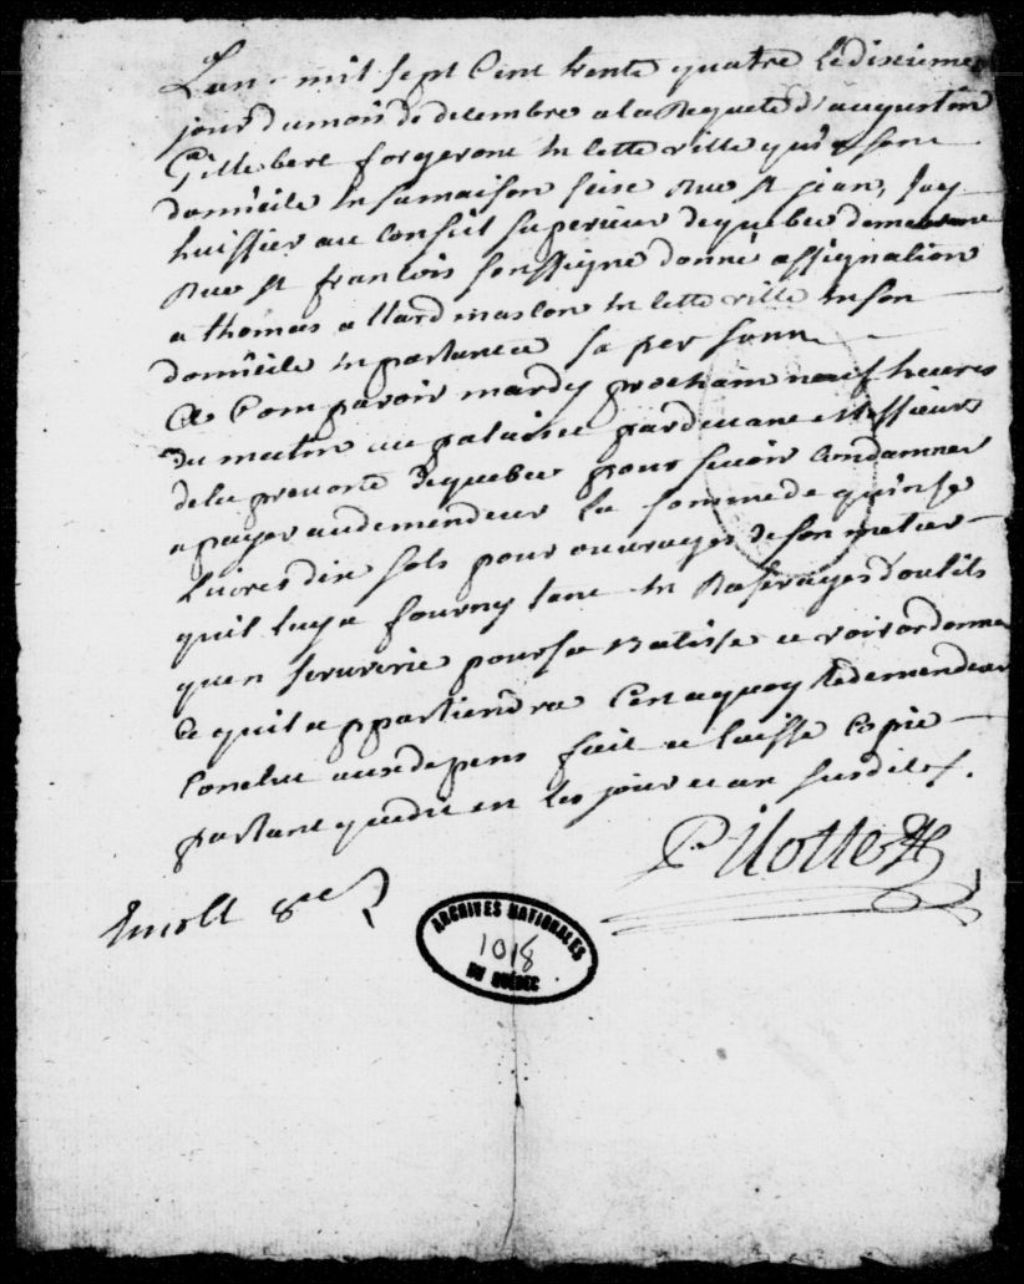 Lan mil sept Cent trente quatre le dixieme
jour du mois de decembre a la Requete d'augustin
Gillebert forgeront en cette ville qui a son
domicile en sa maison seize Rue st jean, jay
huissier au Conseil superieur de quebec demeurant
Rue st francois soussigné donné assignation
a thomas allard masson en cette ville en son
domicile en parlant a sa personne
A Comparoir mardy prochain neuf heures
du matin au palais et pardevant Messieurs
de la prevosté de quebec pour se voir Condamner
a payer au demendeur la somme de quinse
Livres dix sols pour ouvrages de son metier
quil luy a fourny tant en Rasserages d'outils
quen serurerie pour sa Batisse et voir ordonner
Ce quil appartiendra Cest a quoy le demendeur
Conclut aux depens fait et laissé Copie
parlant que dit est les jour et an susdites.
Pilotte
ARCHIVES NATIONALES
1018
DU QUÉBEC